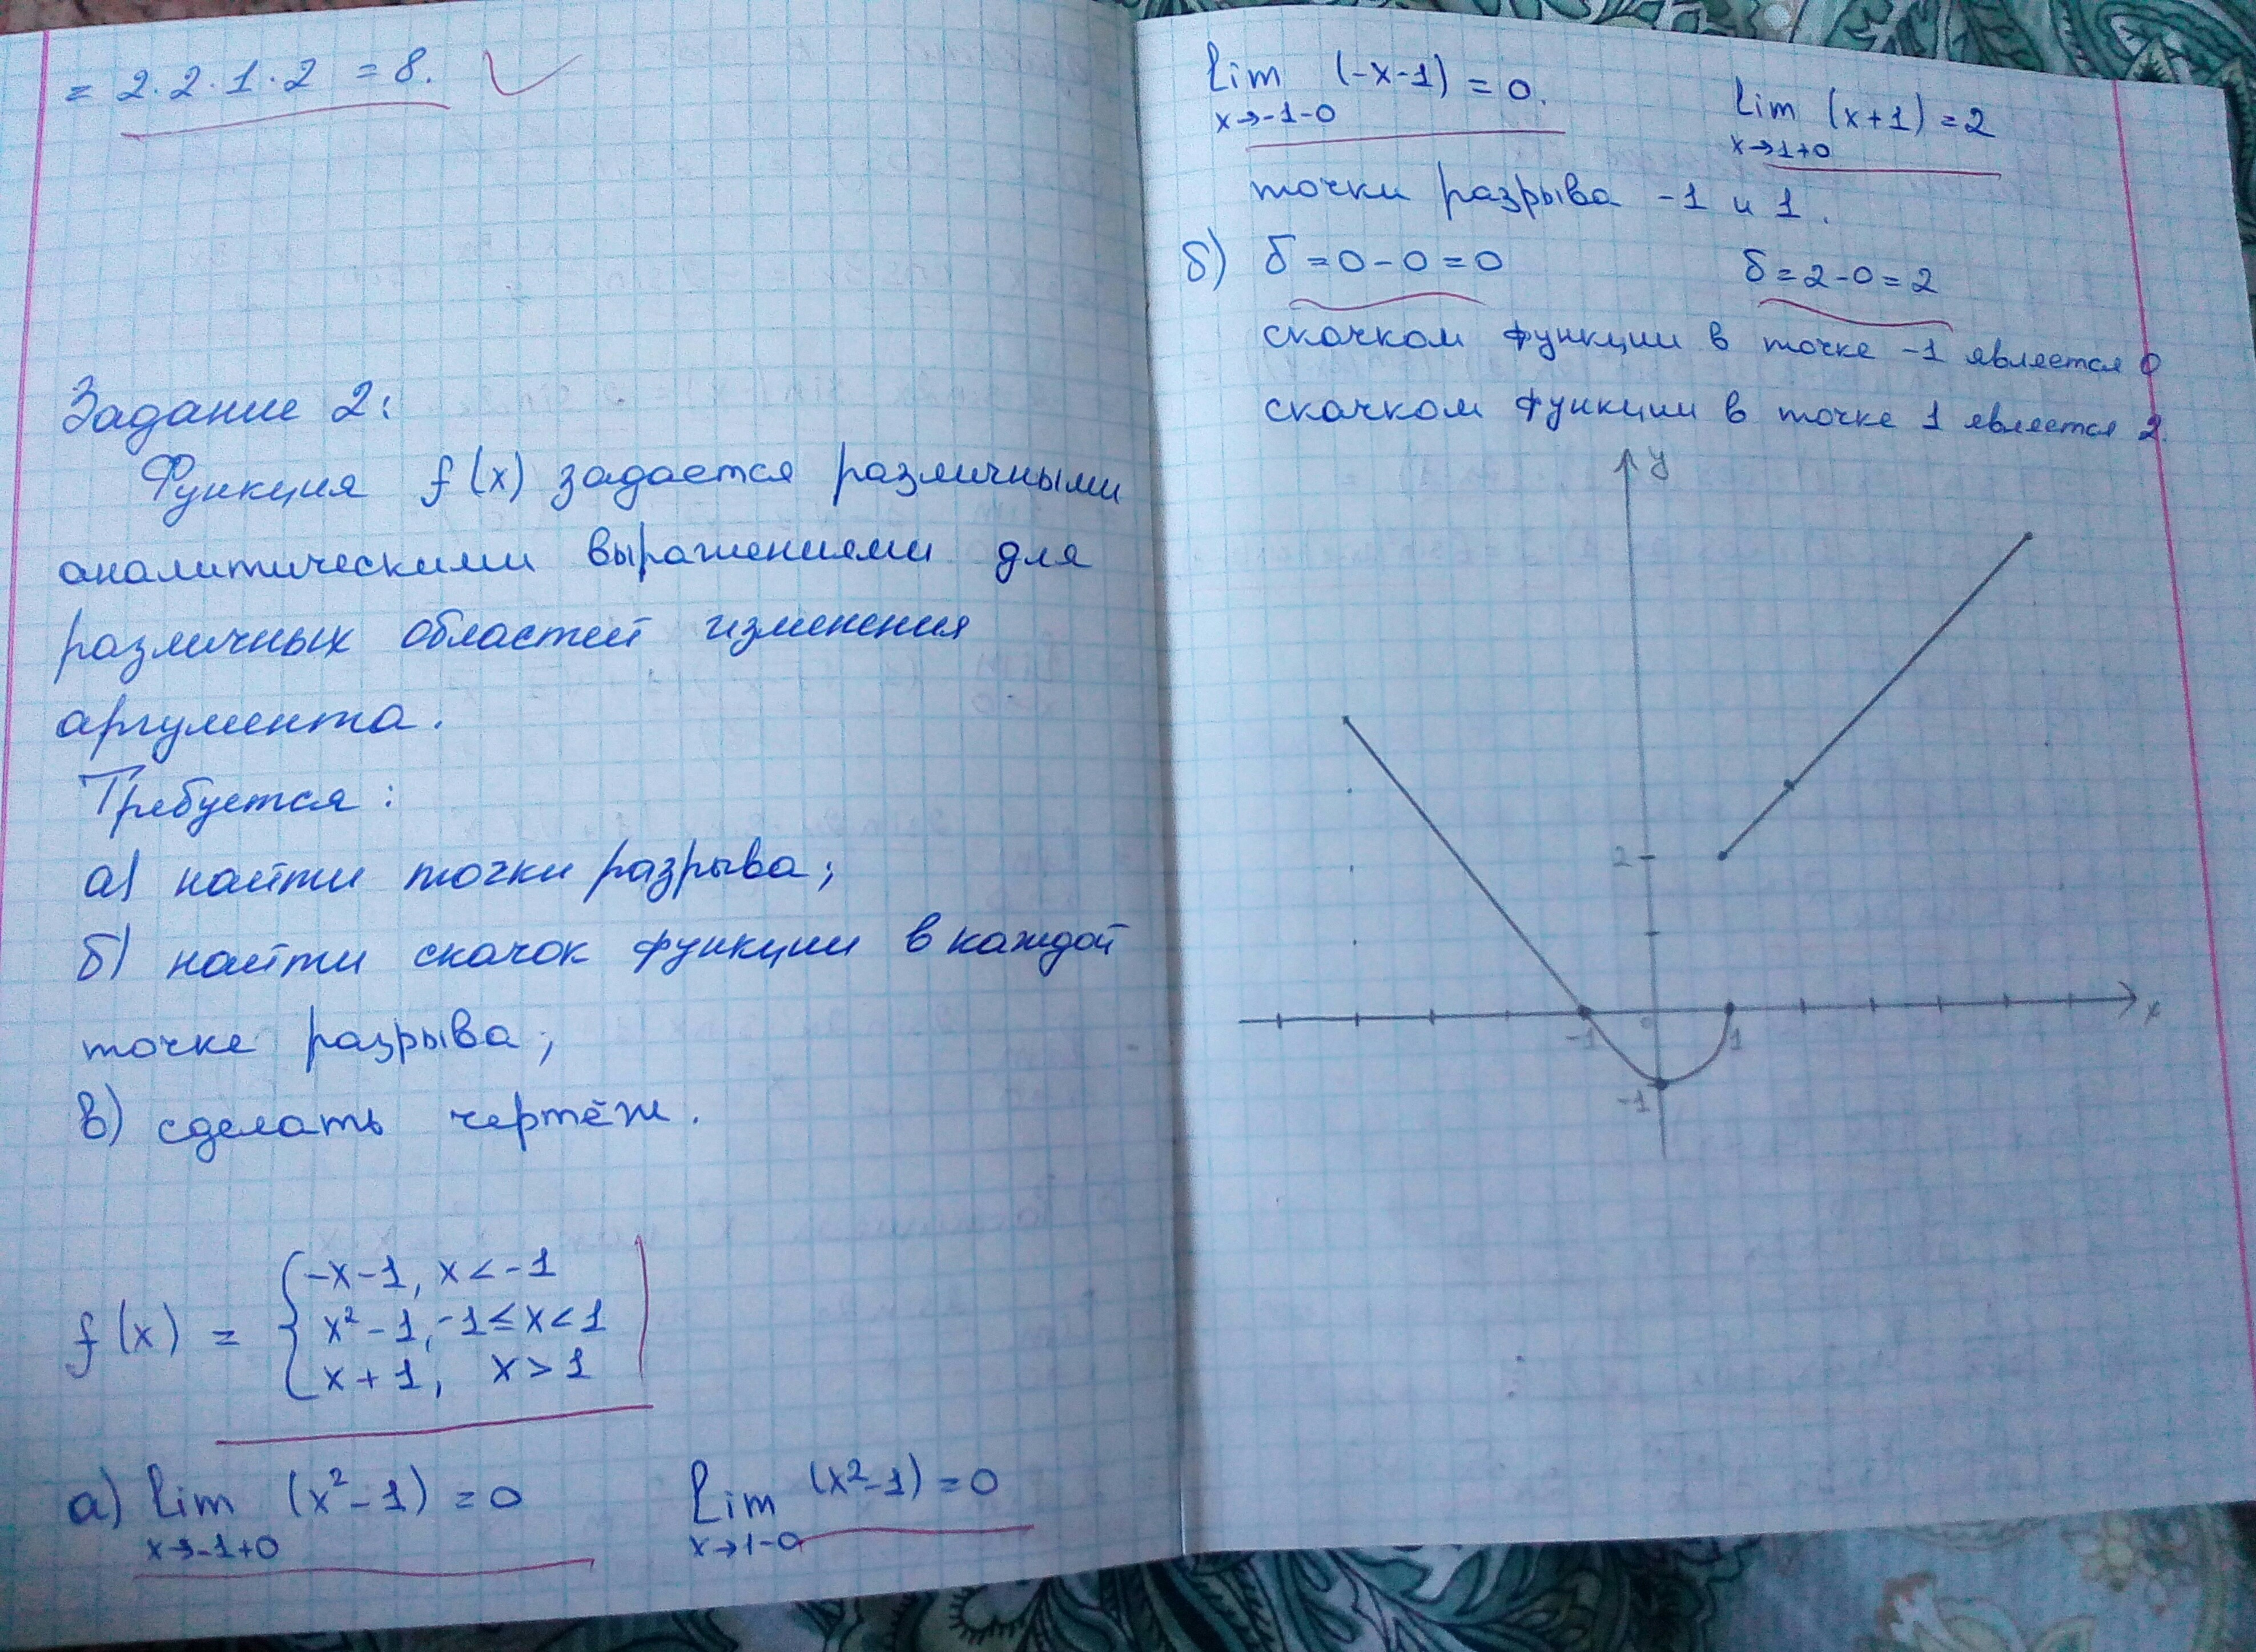 = 2·2·1·2 = 8.
Задание 2:
Функция f(x) задаётся различными
аналитическими выражениями для
различных областей изменения
аргумента.
Требуется:
а) найти точки разрыва;
б) найти скачок функции в каждой
точке разрыва;
в) сделать чертёж.
f(x) = { -x-1, x < -1
x²-1, -1 ≤ x < 1
x+1, x > 1
а) lim (x²-1) = 0 lim (x²-1) = 0
x→-1+0 x→1-0
lim (-x-1) = 0. lim (x+1) = 2
x→-1-0 x→1+0
точки разрыва -1 и 1.
б) δ = 0-0 = 0 δ = 2-0 = 2
скачком функции в точке -1 является 0
скачком функции в точке 1 является 2.
y
2
-1 0 1 x
-1